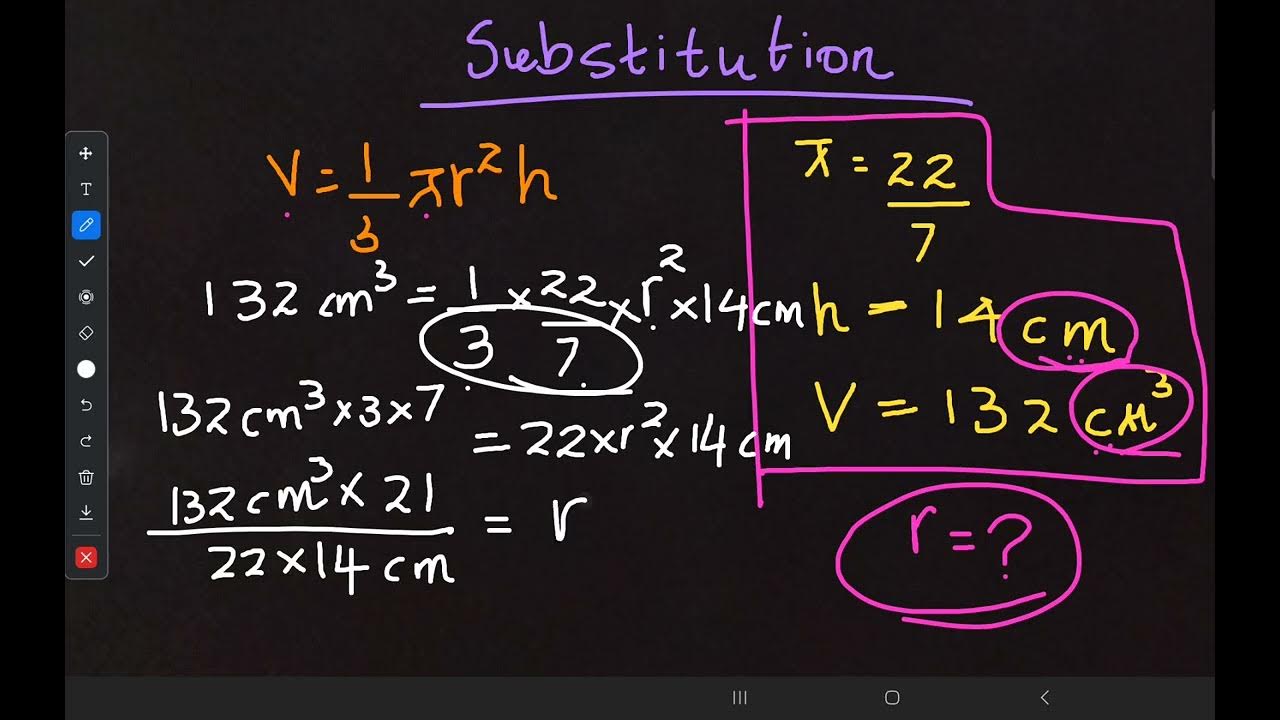 Substitution
V = 1/3 πr²h
132 cm³ = 1/3 × 22/7 × r² × 14cm
132cm³ × 3 × 7 = 22 × r² × 14cm
132cm³ × 21 / 22 × 14 cm = r
π = 22/7
h = 14 cm
V = 132 cm³
r = ?
T